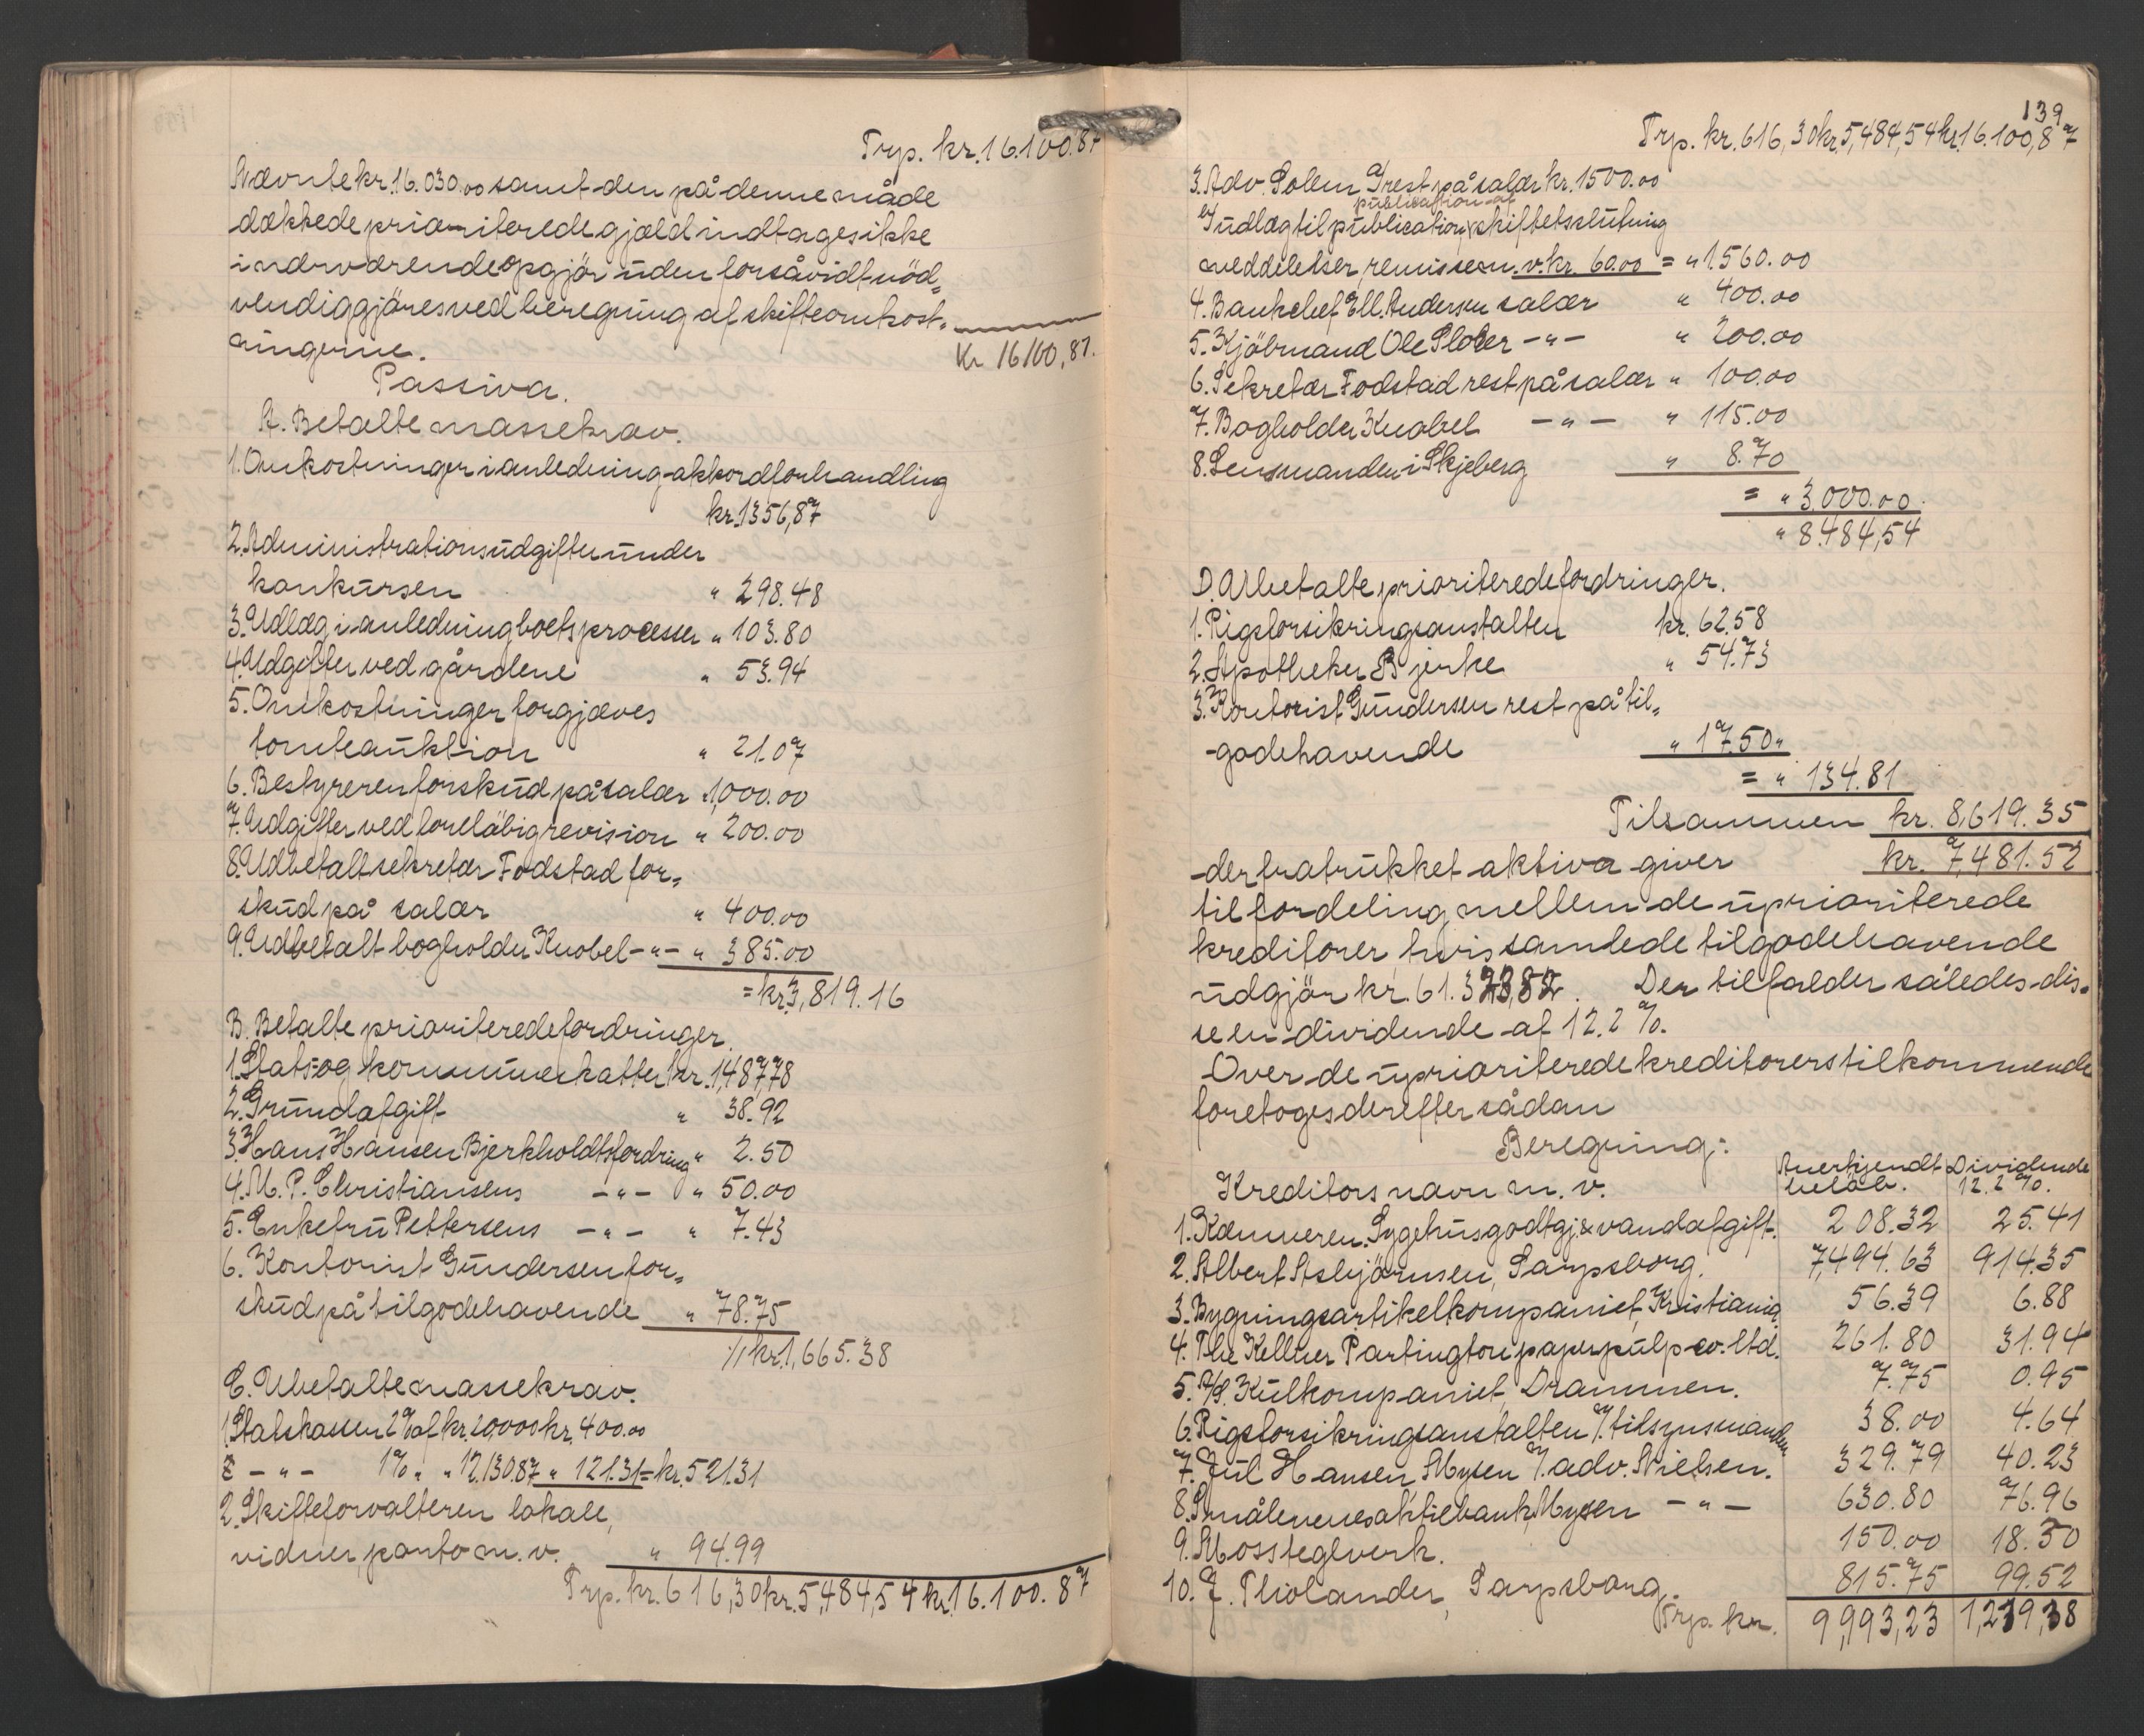 Trp. kr. 16.100.87
nævnte kr. 16.030.00 samt den på denne måde
dækkede prioriterede gjæld indtages ikke
i nærværende opgjör uden forsåvidt nöd„
vendiggjöres ved beregning af skifteomkost„
ningerne.
Kr 16100,87.
Passiva.
A. Betalte massekrav.
1. Omkostninger i anledning akkordforhandling
kr. 1356,87
2. Administrationsudgifter under
konkursen " 298.48
3. Udlæg i anledning boets processer " 103.80
4. Udgifter ved gårdene " 53.94
5. Omkostninger forgjæves
tomteauktion " 21.07
6. Bestyreren forskud på salær " 1,000.00
7. Udgifter ved forelöbig revision " 200.00
8. Udbetalt sekretær Fodstad for„
skud på salær " 400.00
9. Udbetalt bogholder Knobel -"- " 385.00
= kr. 3,819.16
B. Betalte prioriterede fordringer.
1. Stats- og kommuneskatter kr. 1,487.78
2. Grundafgift " 38.92
3. Hans Hansen Bjerkholdts fordring " 2.50
4. M. P. Christiansens -"- " 50.00
5. Enkefru Pettersens -"- " 7.43
6. Kontorist Gundersen for„
skud på tilgodehavende " 78.75
kr. 1,665.38
C. Ubetalte massekrav.
1. Statskassen 2% af kr. 20,000 kr. 400.00
-"- 1% " " 12,130.87 " 121.31 = kr. 521.31
2. Skifteforvalteren lokale,
vidner, porto m. v. " 94.99
Trp. kr. 616,30 kr. 5,484,54 kr. 16.100.87
139
Trp. kr. 616,30 kr. 5,484,54 kr. 16.100,87
3. Adv. Solem a/ rest på salær kr. 1500.00
publication af
b/ udlæg til publication skiftetslutning
meddelelser, remissen m. v. kr. 60.00 = " 1.560.00
4. Bankchef Ell. Andersen salær " 400.00
5. Kjöbmand Ole Ploer -"- " 200.00
6. Sekretær Fodstad rest på salær " 100.00
7. Bogholder Knobel -"- " 115.00
8. Lensmanden i Skjeberg " 8.70
= " 3.000.00
" 8.484,54
D. Ubetalte prioriterede fordringer.
1. Rigsforsikringsanstalten kr. 62.58
2. Apotheker Bjerke " 54.73
3. Kontorist Gundersen rest på til„
godehavende " 17.50 "
= " 134.81
Tilsammen kr. 8,619.35
der fratrukket aktiva giver kr. 7,481.52
til fordeling mellem de uprioriterede
kreditorer, hvis samlede tilgodehavende
udgjör kr. 61.328,82. Der tilfalder således dis„
se en dividende af 12.2 %.
Over de uprioriterede kreditorers tilkommende
foretoges derefter sådan
Beregning:
Kreditors navn m. v. Anerkjendt belöb. Dividende 12.2 %.
1. Kæmneren. Sygehusgodtgj. & vandafgift. 208.32 25.41
2. Albert Asbjörnsen, Sarpsborg. 7,494.63 914.35
3. Bygningsartikelkompaniet, Kristiania 56.39 6.88
4. The Kellner Partington paper pulp co. ltd. 261.80 31.94
5. A/S. Kulkompaniet, Drammen. 7.75 0.95
6. Rigsforsikringsanstalten v/ tilsynsmanden 38.00 4.64
7. Jul Hansen, Mysen v/ adv. Nielsen. 329.79 40.23
8. Smålenenes aktiebank, Mysen -"- 630.80 76.96
9. Moss teglverk. 150.00 18.30
10. J. Tholander, Sarpsborg. 815.75 99.52
Trp. kr. 9,993,23 1,219,38